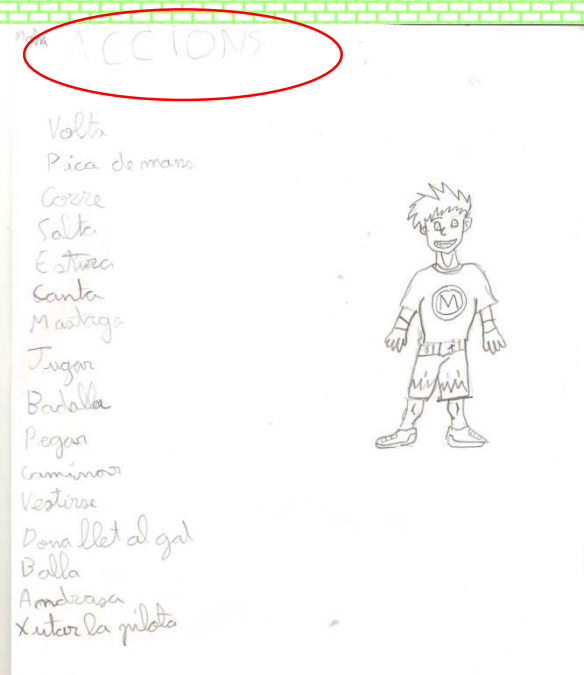 ACCIONS
Volta
Pica de mans
Corre
Salta
Estira
Canta
Mastega
Jugar
Badalla
Pegar
Caminar
Vestirse
Dona llet al gat
Balla
Xutar la pilota
M